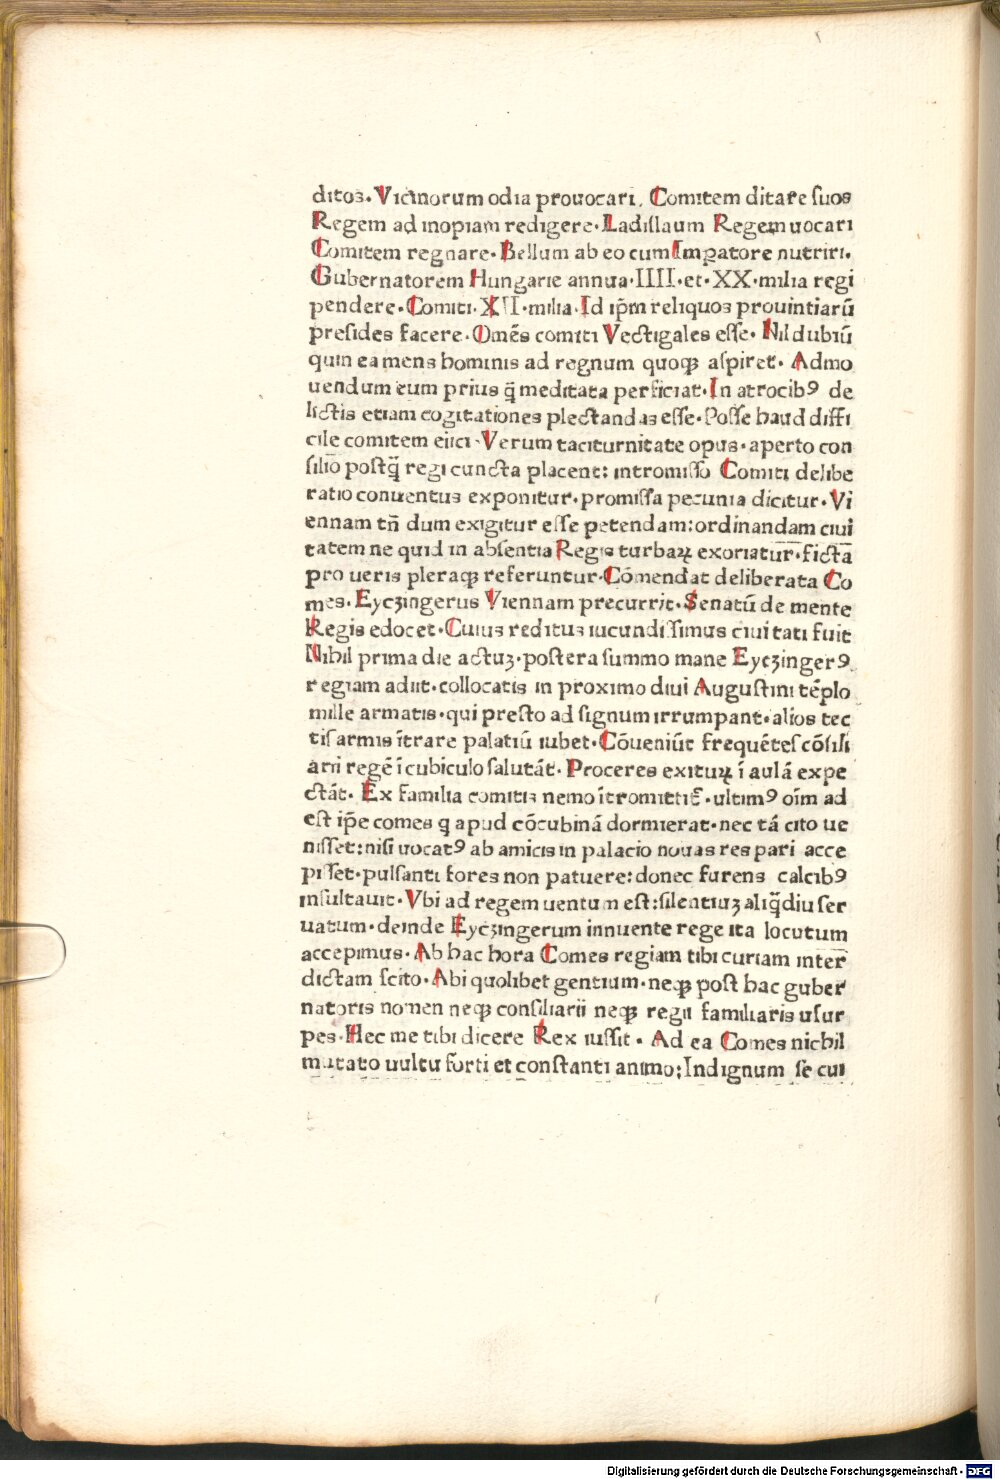 ditoʒ. Vicinorum odia prouocari. Comitem ditare ſuos
Regem ad inopiam redigere·Ladiſlaum Regem uocari
Comitem regnare·Bellum ab eo cum Imꝑatore nutriri.
Gubernatorem Hungarie annua·IIII·et·XX·milia regi
pendere·Comiti·XII·milia·Id ip̄m reliquos prouintiarū
preſides facere·Omēs comiti Vectigales eſſe· Nil dubiū
quin ea mens hominis ad regnum quoqꝫ aſpiret· Admo
uendum eum prius q̄ meditata perficiat·In atrocibꝰ de
lictis etiam cogitationes plectendas eſſe·Poſſe haud diffi
cile comitem eiici·Verum taciturnitate opus·aperto con
ſilio poſtq̄ regi cuncta placent: intromiſſo Comiti delibe
ratio conuentus exponitur·promiſſa pecunia dicitur·Vi
ennam tn̄ dum exigitur eſſe petendam:ordinandam ciui
tatem ne quid in abſentia Regis turbaꝝ exoriatur·ficta
pro ueris pleraqꝫ referuntur·Cōmendat deliberata Co
mes·Eyczingerus Viennam precurrit·Senatū de mente
Regis edocet·Cuius reditus iucundiſſimus ciuitati fuit
Nihil prima die actuʒ·poſtera ſummo mane Eyczingerꝰ
regiam adiit·collocatis in proximo diui Auguſtini tēplo
mille armatis·qui preſto ad ſignum irrumpant·alios tec
tiſ armis ītrare palatiū iubet·Cōueniūt frequēteſ cōſili
arii regē ī cubiculo ſalutāt·Proceres exituꝝ ī aulā expe
ctāt· Ex familia comitis nemo ītromittit̄·ultimꝰ oīm ad
eſt ip̄e comes q apud cōcubinā dormierat·nec tā cito ue
niſſet:niſi uocatꝰ ab amicis in palacio nouas res pari acce
piſſet·pulſanti fores non patuere:donec furens calcibꝰ
inſultauit·Vbi ad regem uentum eſt:ſilentiuʒ aliq̄diu ſer
uatum·deinde Eyczingerum innuente rege ita locutum
accepimus·Ab hac hora Comes regiam tibi curiam inter
dictam ſcito·Abi quolibet gentium·neqꝫ poſt hac guber
natoris nomen neqꝫ conſiliarii neqꝫ regii familiaris uſur
pes·Hec me tibi dicere Rex iuſſit· Ad ea Comes nichil
mutato uultu forti et conſtanti animo:Indignum ſe cui
Digitalisierung gefördert durch die Deutsche Forschungsgemeinschaft - DFG